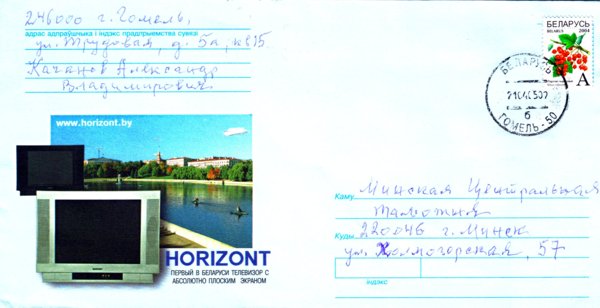 246000 г. Гомель,
адрас адпраўшчыка і індэкс прадпрыемства сувязі
ул. Трудовая, д. 5а, кв 15
Качанов Александр
Владимирович.
БЕЛАРУСЬ
BELARUS 2004
A
БЕЛАРУСЬ
б
ГОМЕЛЬ-50
www.horizont.by
HORIZONT
ПЕРВЫЙ В БЕЛАРУСИ ТЕЛЕВИЗОР С
АБСОЛЮТНО ПЛОСКИМ ЭКРАНОМ
Каму Минская Центральная
таможня
Куды 220046 г. Минск
ул. Холмогорская, 57
індэкс